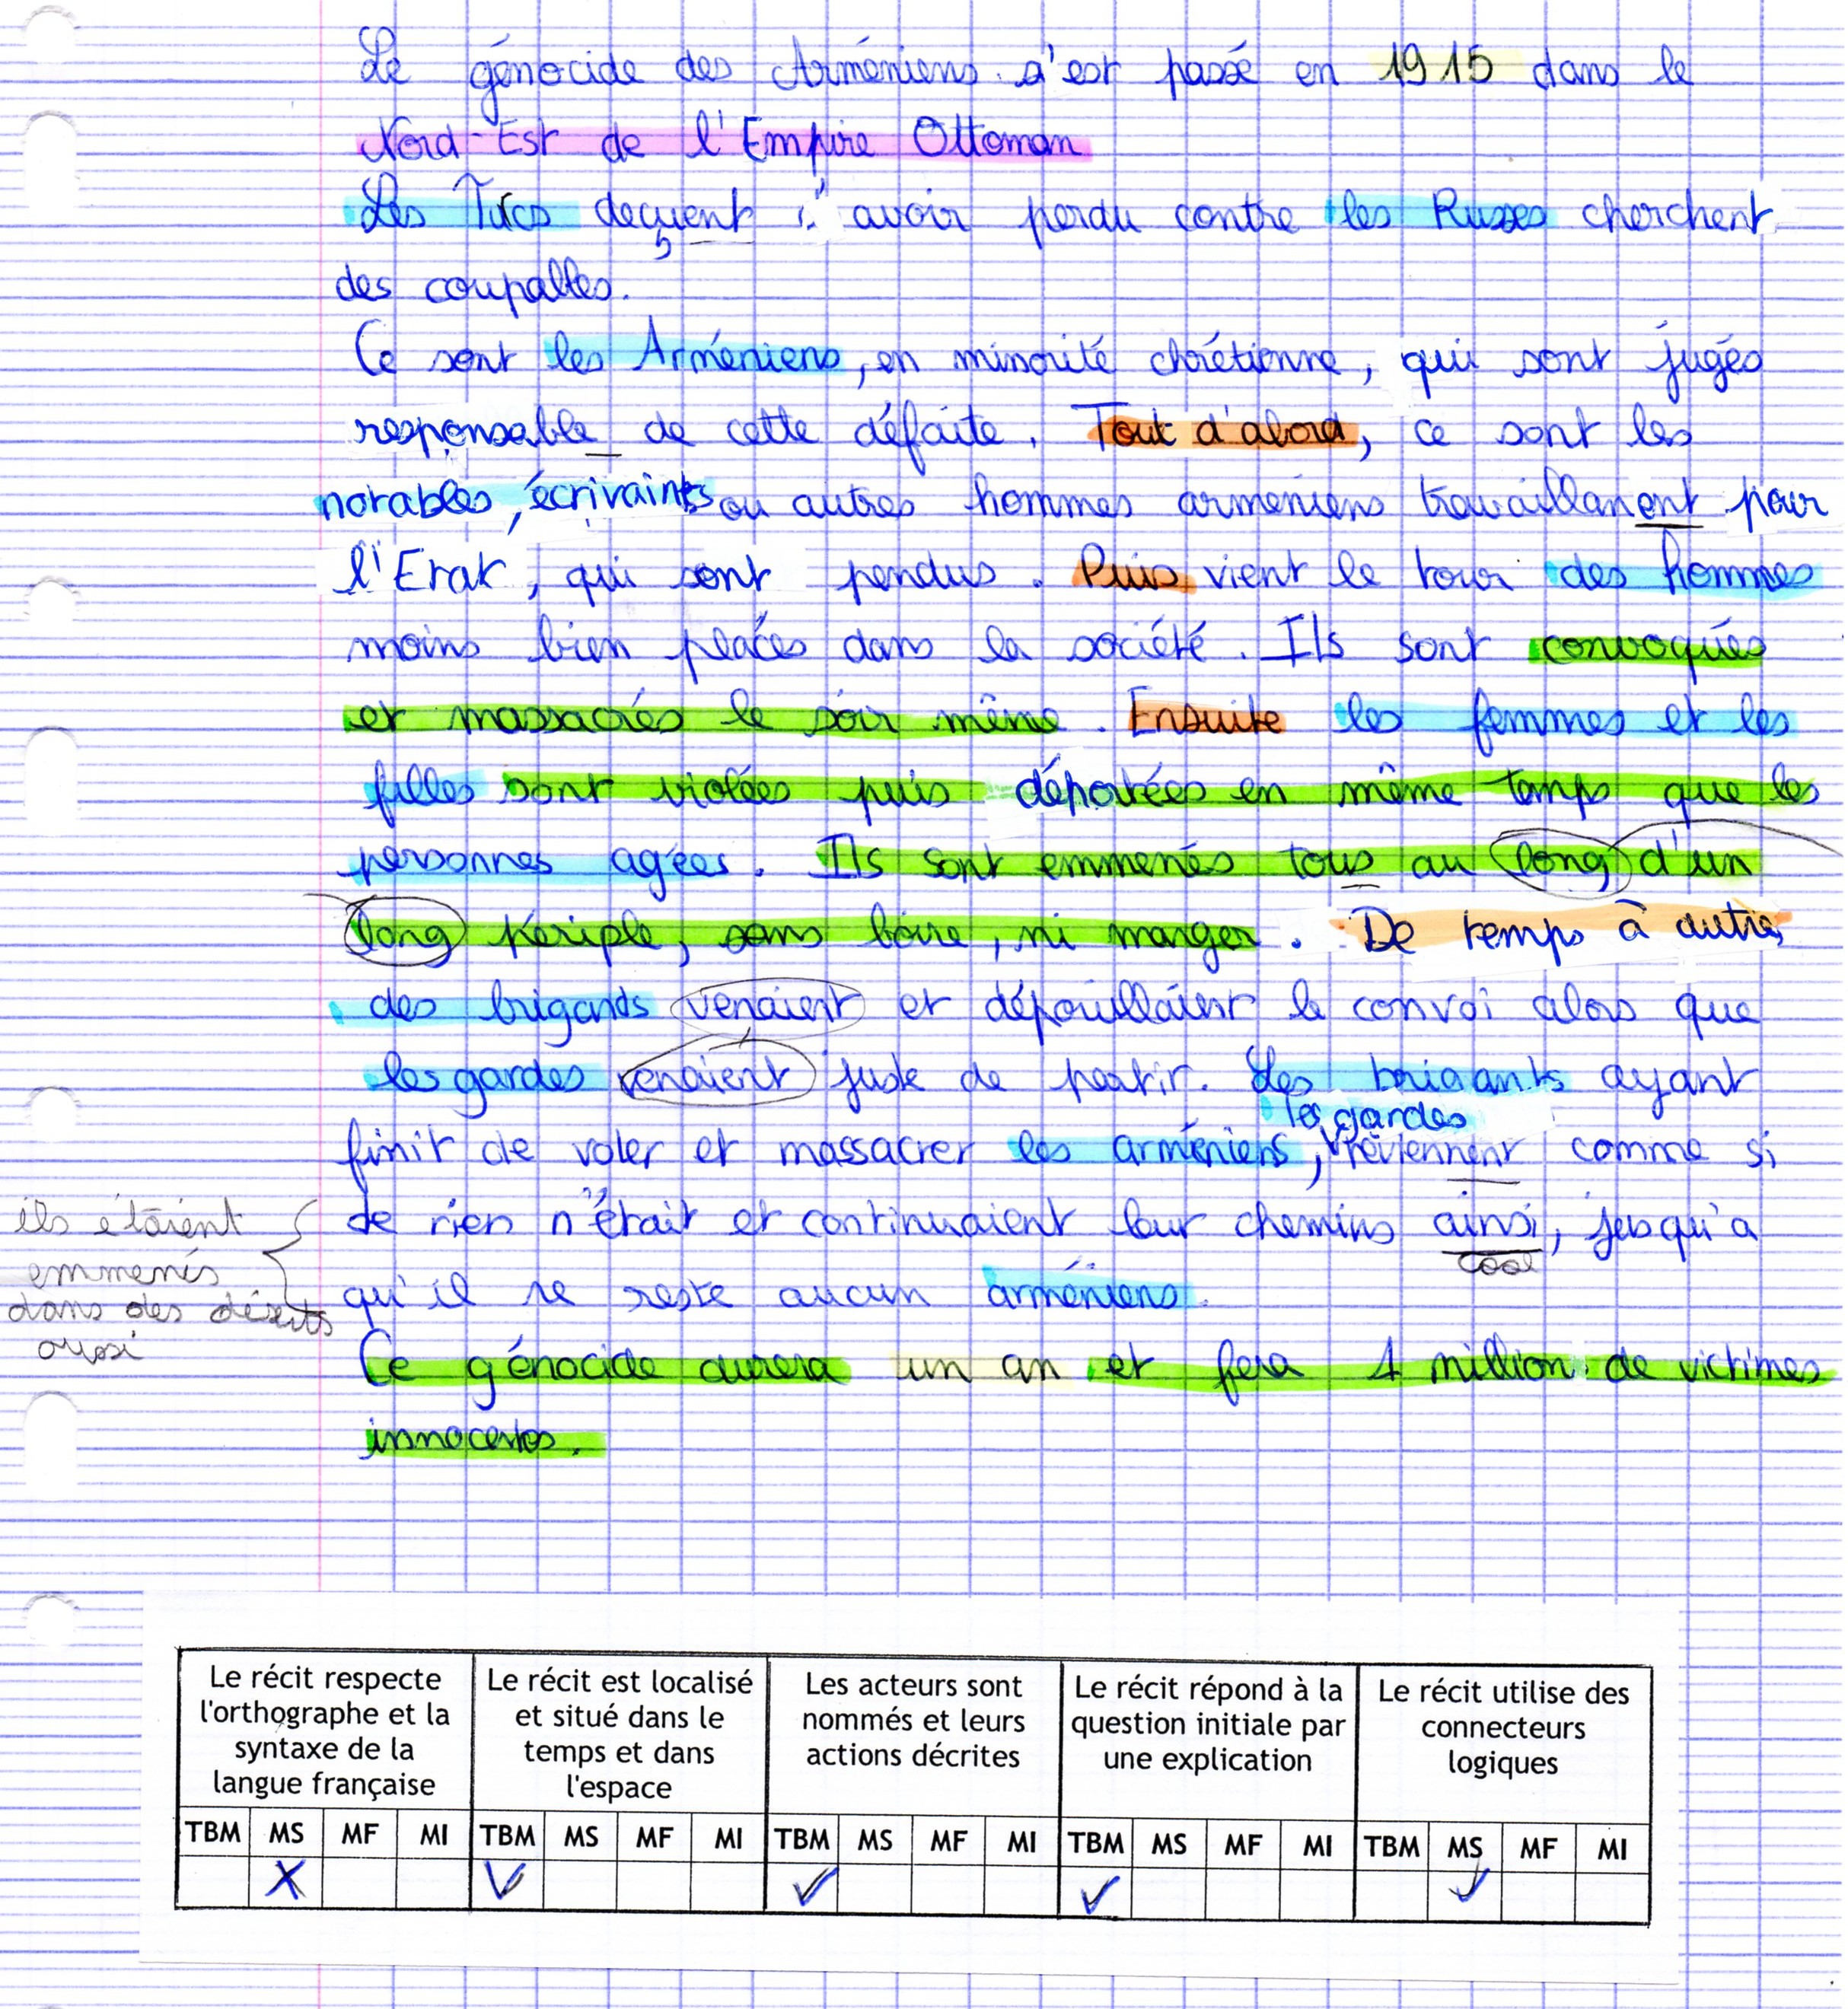 Le génocide des Arméniens s'est passé en 1915 dans le
Nord-Est de l'Empire Ottoman
Les Turcs deçuent avoir perdu contre les Russes cherchent
des coupables.
Ce sont les Arméniens, en minorité chrétienne, qui sont jugés
responsable de cette défaite. Tout d'abord, ce sont les
notables, écrivains ou autres hommes armeniens travaillanent pour
l'Etat, qui sont pendus. Puis vient le tour des hommes
moins bien placés dans la société. Ils sont convoqués
et massacrés le soir même. Ensuite les femmes et les
filles sont violées puis déportées en même temps que les
personnes agées. Ils sont emmenés tous au long d'un
long périple, sans boire, ni manger. De temps à autre,
des brigands venaient et dépouillaient le convoi alors que
les gardes venaient juste de partir. Les brigants ayant
les gardes
finit de voler et massacrer les arméniens, reviennent comme si
de rien n'était et continuaient leur chemins ainsi, jusqu'a
cool
qu'il ne reste aucun arméniens.
ils étaient
emmenés
dans des déserts
aussi
Ce génocide durera un an et fera 1 million de victimes
innocentes.
Le récit respecte l'orthographe et la syntaxe de la langue française
Le récit est localisé et situé dans le temps et dans l'espace
Les acteurs sont nommés et leurs actions décrites
Le récit répond à la question initiale par une explication
Le récit utilise des connecteurs logiques
TBM MS MF MI TBM MS MF MI TBM MS MF MI TBM MS MF MI TBM MS MF MI